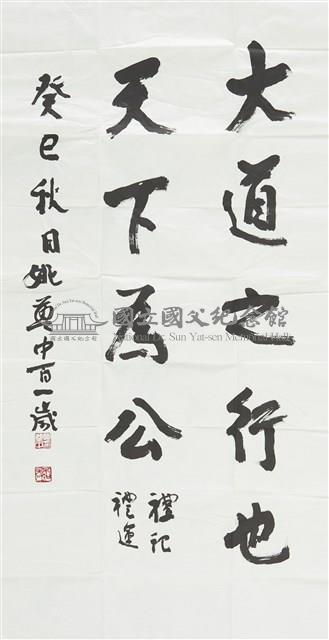 大道之行也
天下為公
禮記
禮運
癸巳秋日姚奠中百一歲
國立國父紀念館
National Dr. Sun Yat-sen Memorial Hall